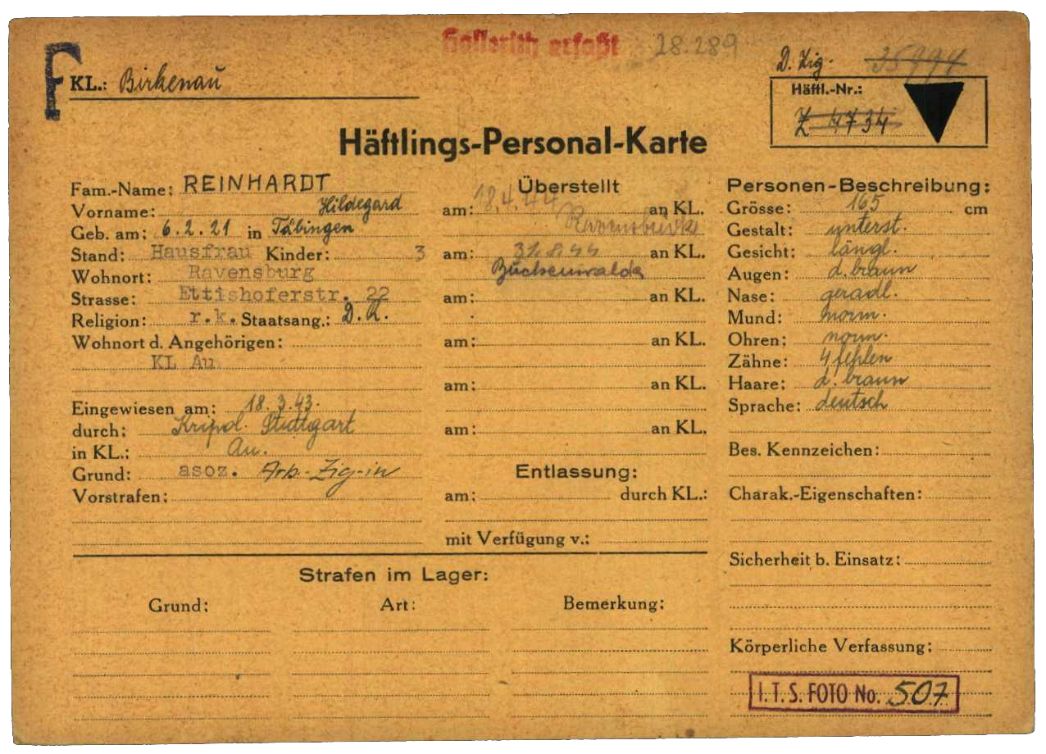 F
Hollerith erfaßt 28.289
KL.: Birkenau
D. Zig.
Häftl.-Nr.:
Z 4734
Häftlings-Personal-Karte
Fam.-Name: REINHARDT
Vorname: Hildegard
Geb. am: 6.2.21 in Tübingen
Stand: Hausfrau Kinder: 3
Wohnort: Ravensburg
Strasse: Ettishoferstr. 22
Religion: r.k. Staatsang.: D.R.
Wohnort d. Angehörigen:
KL Au
Eingewiesen am: 18.3.43.
durch: Kripol. Stuttgart
in KL.: Au.
Grund: asoz. Arb.-Zig-in
Vorstrafen:
Überstellt
am: 18.4.44 an KL.
Ravensbrück
am: 31.8.44 an KL.
Buchenwalde
am: an KL.
am: an KL.
am: an KL.
am: an KL.
Entlassung:
am: durch KL.:
mit Verfügung v.:
Personen-Beschreibung:
Grösse: 165 cm
Gestalt: unterst.
Gesicht: längl.
Augen: d. braun
Nase: geradl.
Mund: norm.
Ohren: norm.
Zähne: 4 fehlen
Haare: d. braun
Sprache: deutsch
Bes. Kennzeichen:
Charak.-Eigenschaften:
Sicherheit b. Einsatz:
Körperliche Verfassung:
Strafen im Lager:
Grund: Art: Bemerkung:
I.T.S. FOTO No. 507